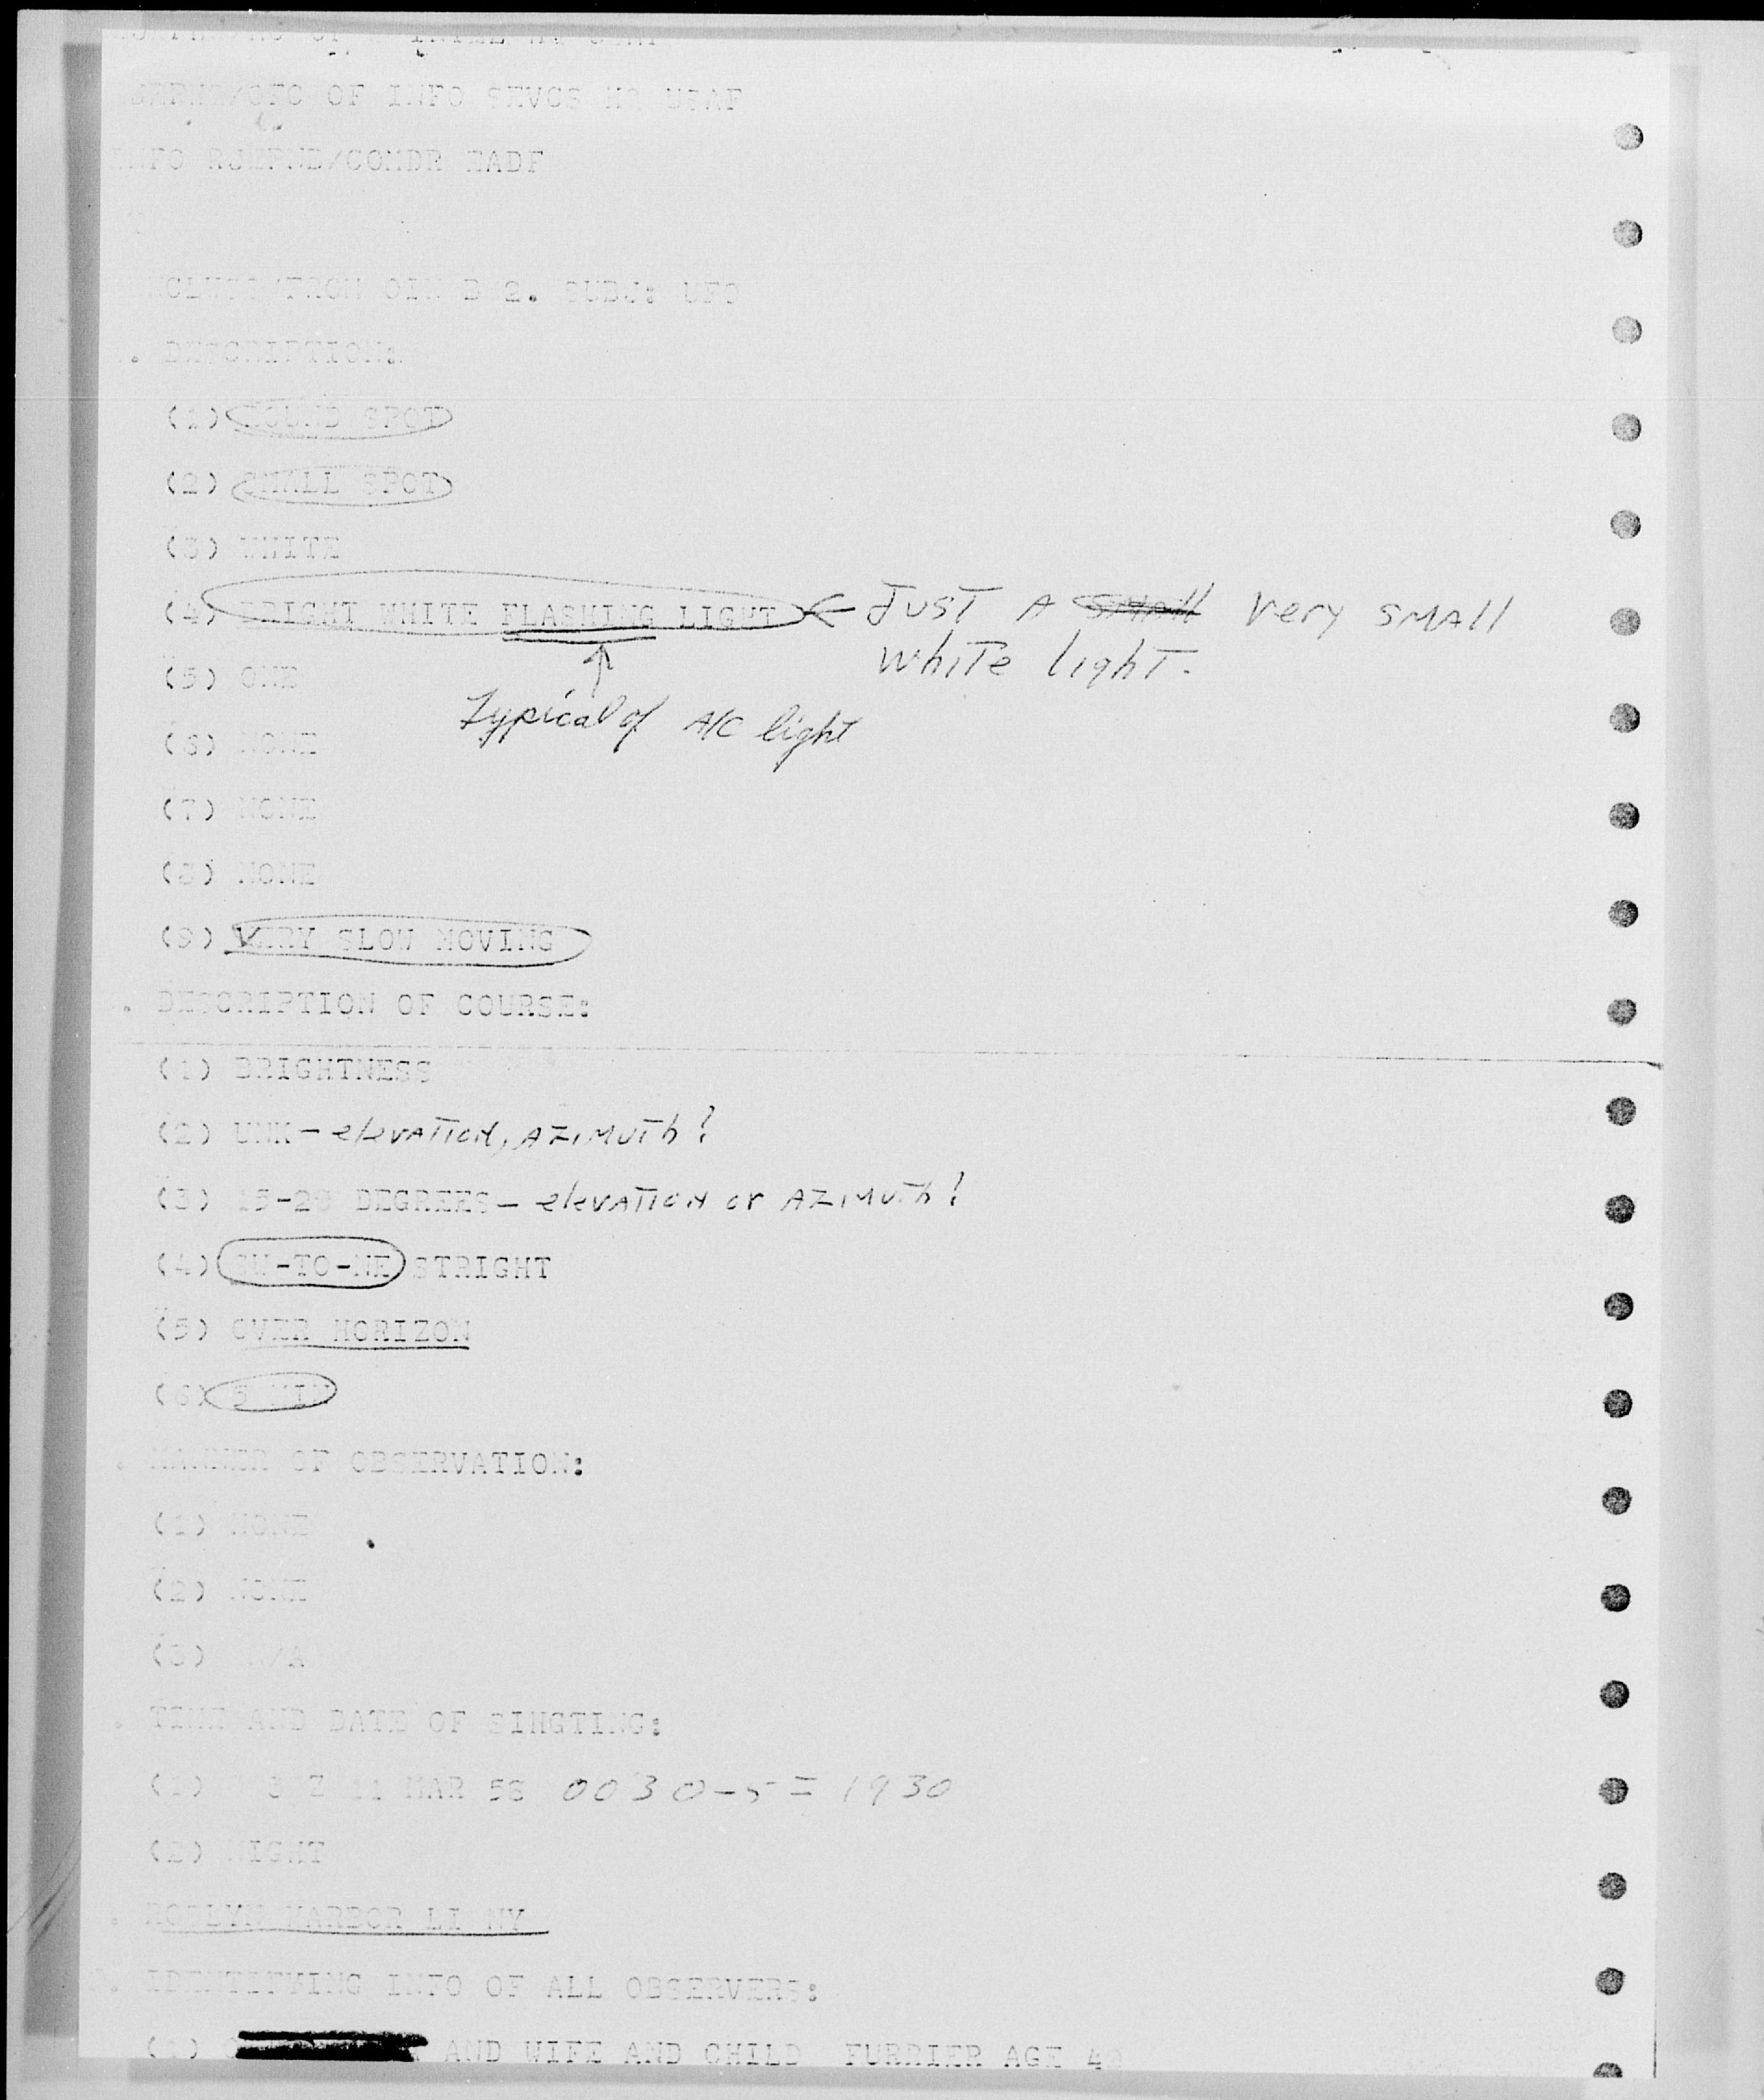 OF INFO SEVCS HQ USAF
INFO RJEPNB/COMDR EADF
OIN D 2. SUBJ: UFO
. DESCRIPTION:
(1) ROUND SPOT
(2) SMALL SPOT
(3) WHITE
(4) BRIGHT WHITE FLASHING LIGHT ← JUST A small very small
white light.
(5) ONE
Typical of A/C light
(6) NONE
(7) NONE
(8) NONE
(9) VERY SLOW MOVING
. DESCRIPTION OF COURSE:
(1) BRIGHTNESS
(2) UNK - elevation, AZIMUTh?
(3) 15-20 DEGREES - elevation or AZIMUTh?
(4) SW-TO-NE STRIGHT
(5) OVER HORIZON
(6) 5 MIN
. MANNER OF OBSERVATION:
(1) NONE
(2) NONE
(3) N/A
. TIME AND DATE OF SIHGTING:
(1) Z 11 MAR 58 0030-5 = 1930
(2) NIGHT
. ROSLYN HARBOR LI NY
. IDENTIFKING INFO OF ALL OBSERVERS:
(1) AND WIFE AND CHILD FURRIER AGE